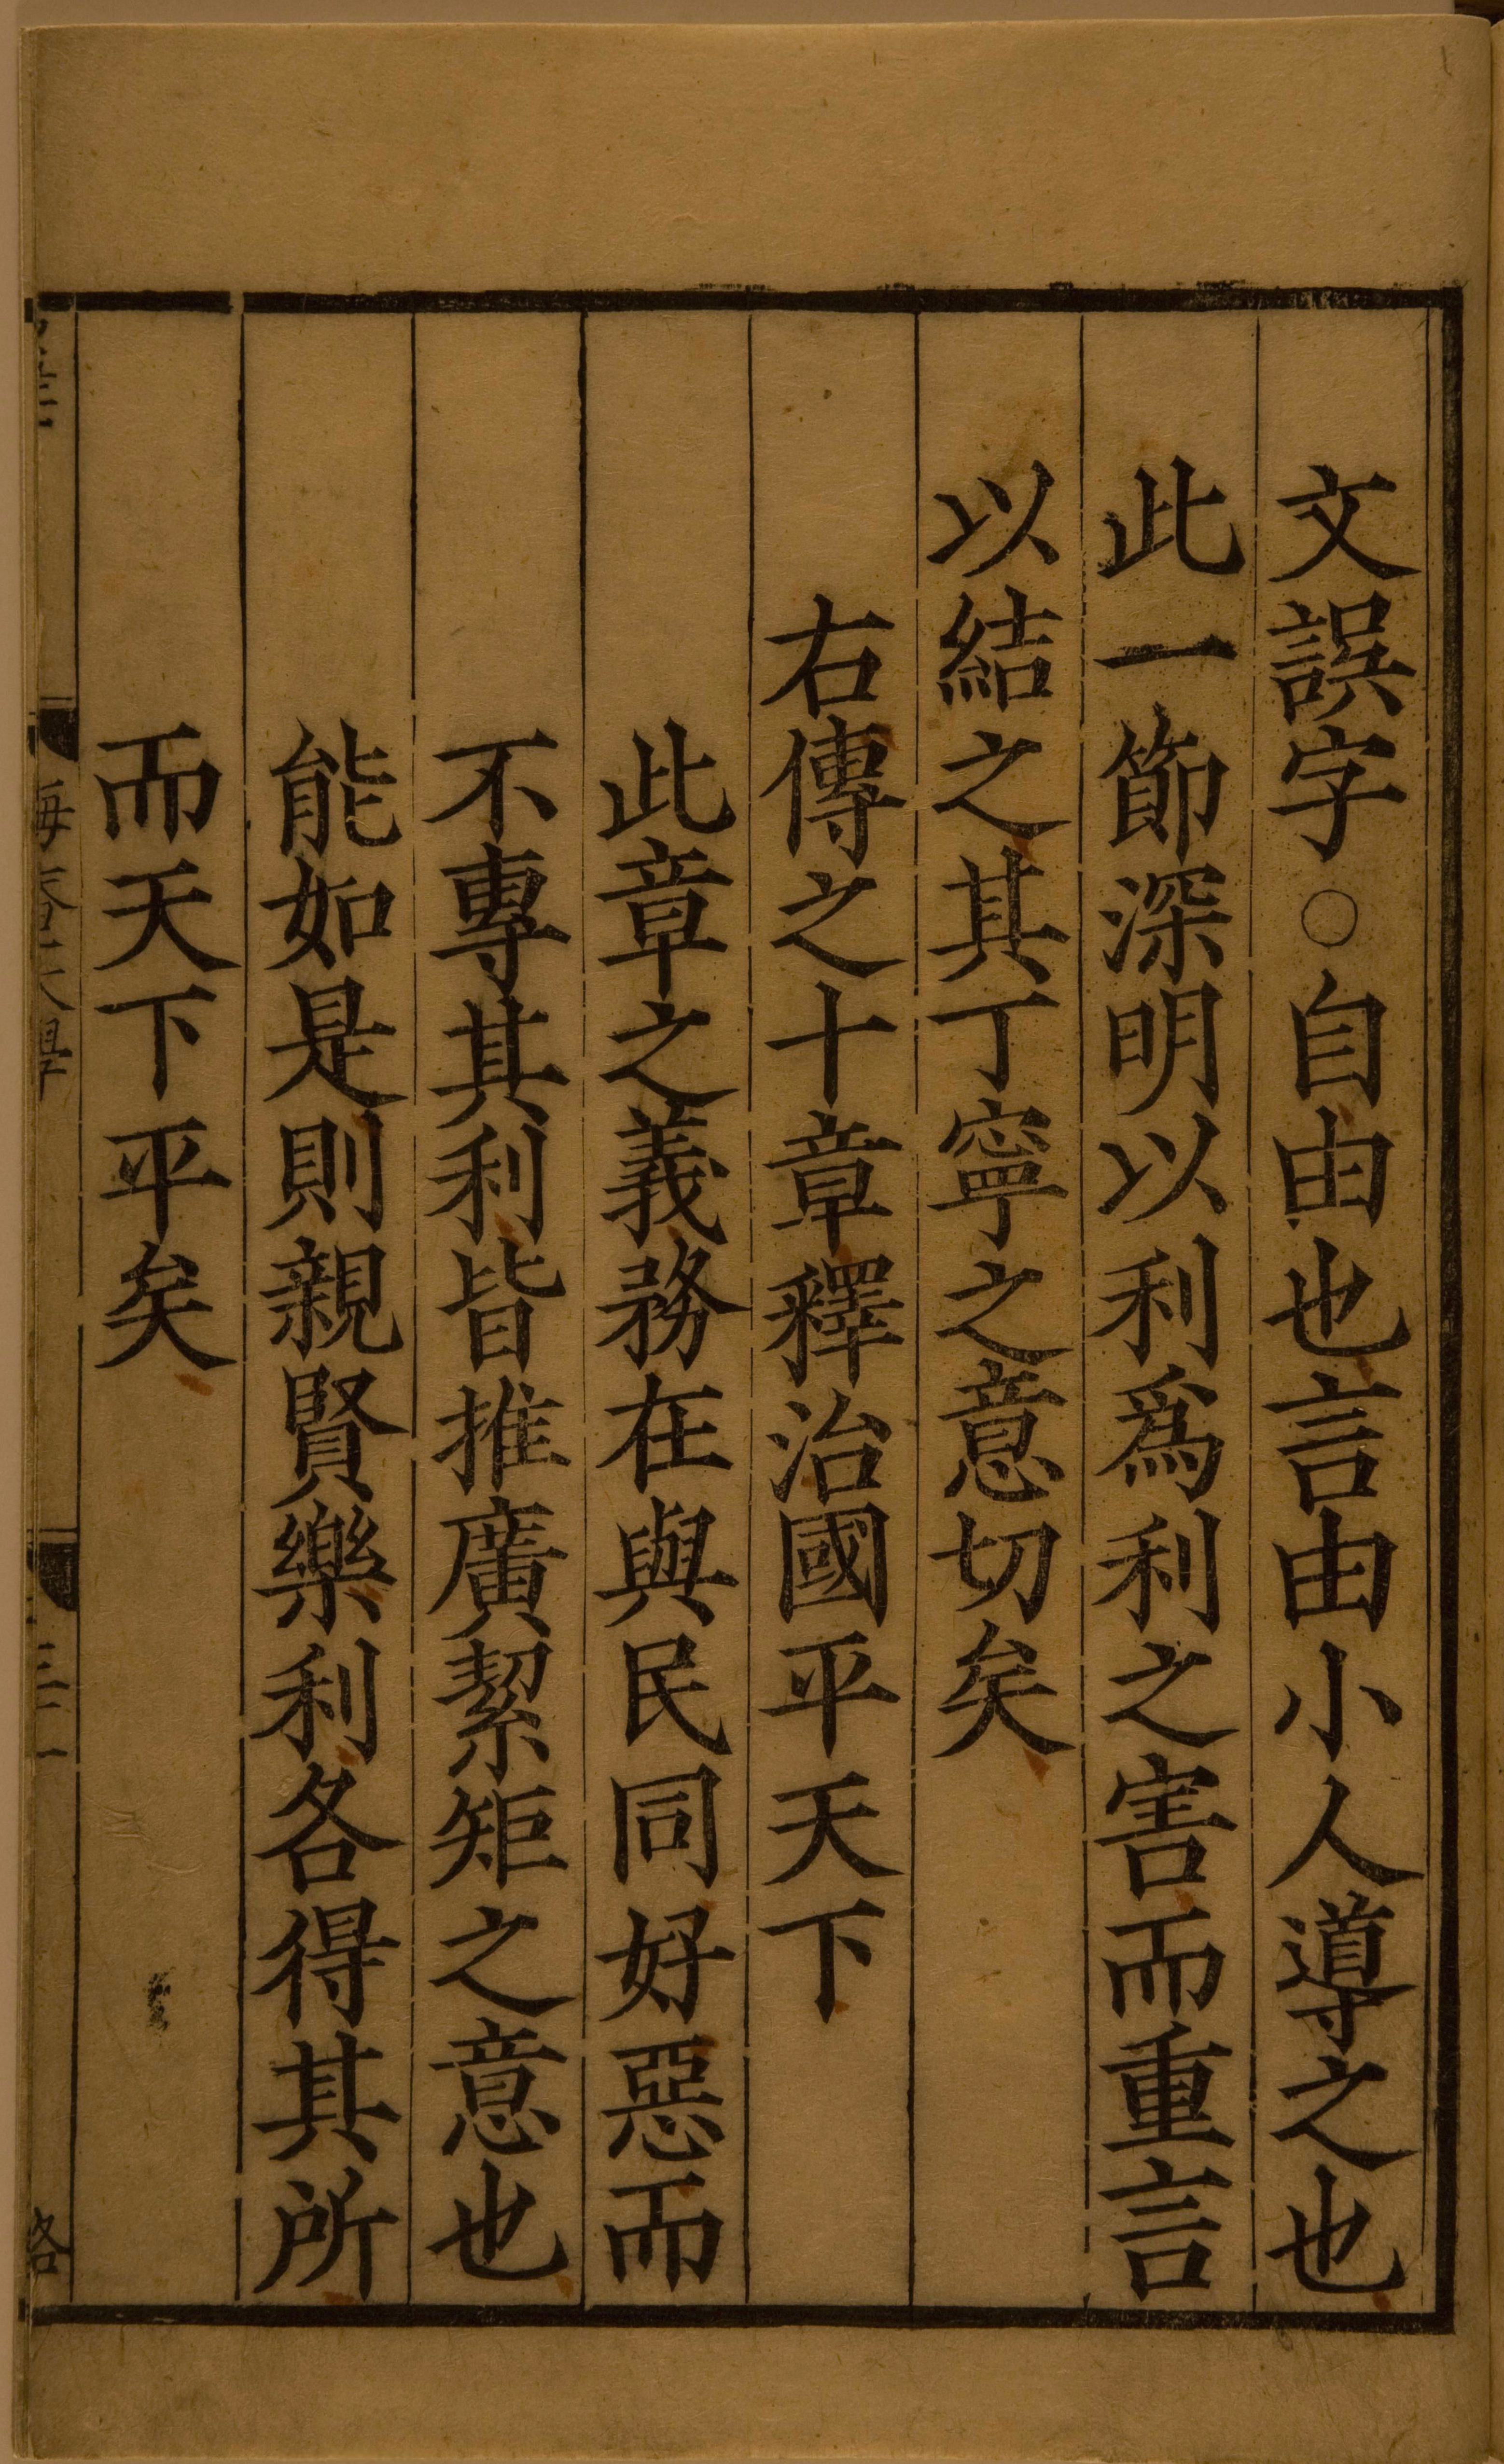 文誤字○自由也言由小人導之也
此一節深明以利爲利之害而重言
以結之其丁寧之意切矣
右傳之十章釋治國平天下
此章之義務在與民同好惡而
不專其利皆推廣絜矩之意也
能如是則親賢樂利各得其所
而天下平矣